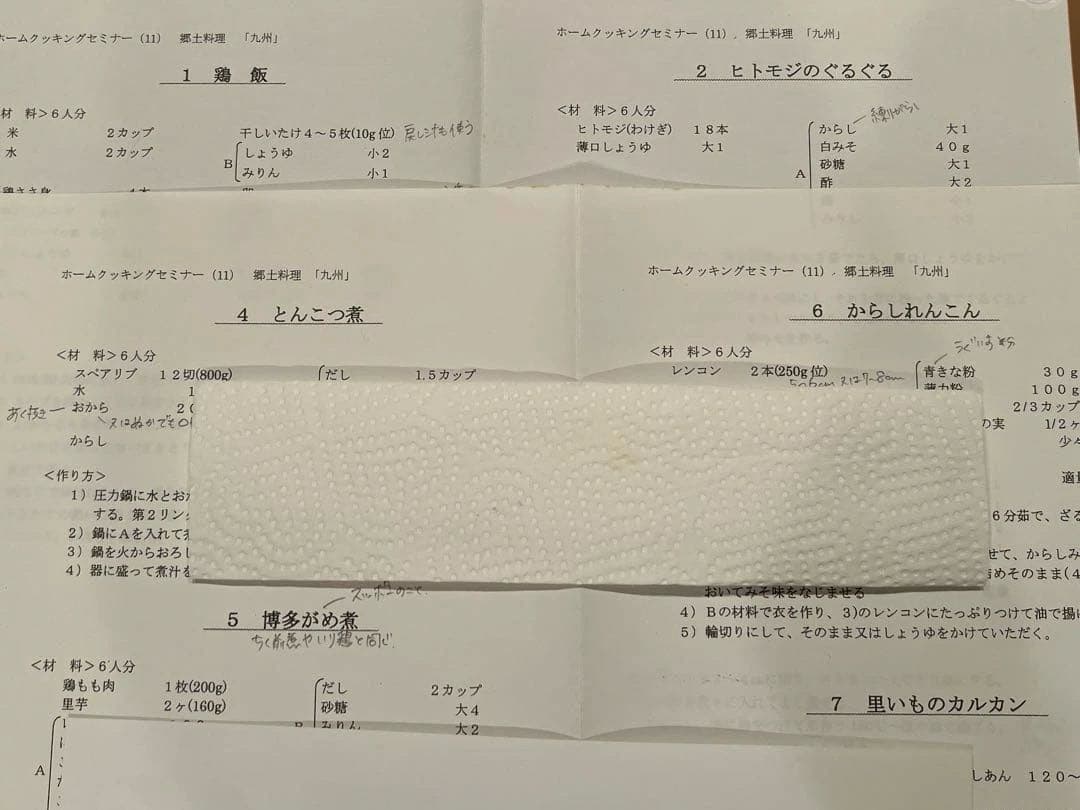 ホームクッキングセミナー（11） 郷土料理 「九州」
1 鶏 飯
材 料＞６人分
米 ２カップ
水 ２カップ
干しいたけ４～５枚(10g位) 戻し汁も使う
B しょうゆ 小２
みりん 小１
鶏ささ身
ホームクッキングセミナー（11）．郷土料理 「九州」
２ ヒトモジのぐるぐる
＜材 料＞６人分
ヒトモジ(わけぎ) １８本
薄口しょうゆ 大１
練りがらし
A
からし 大１
白みそ ４０ｇ
砂糖 大１
酢 大２
ホームクッキングセミナー（11） 郷土料理 「九州」
４ とんこつ煮
＜材 料＞６人分
スペアリブ １２切(800g)
水 １
あく抜き おから ２
又はぬかでもOK
からし
だし 1.5カップ
＜作り方＞
１）圧力鍋に水とおか
する。第２リン
２）鍋にＡを入れて煮
３）鍋を火からおろし
４）器に盛って煮汁を
５ 博多がめ煮
スッポンのこと
ちく前煮やいり鶏と同じ
＜材 料＞６人分
鶏もも肉 １枚(200g)
里芋 ２ヶ(160g)
A
だし ２カップ
砂糖 大４
B みりん 大２
ホームクッキングセミナー（11）．郷土料理 「九州」
６ からしれんこん
＜材 料＞６人分
レンコン ２本(250g位)
5～6cm 又は7～8cm
うぐいす粉
青きな粉 ３０ｇ
薄力粉 １００ｇ
2/3カップ
の実 1/2ヶ
少々
適量
６分茹で、ざる
せて、からしみ
詰めそのまま(４
おいてみそ味をなじませる
４）Ｂの材料で衣を作り、3)のレンコンにたっぷりつけて油で揚げ
５）輪切りにして、そのまま又はしょうゆをかけていただく。
７ 里いものカルカン
しあん １２０～